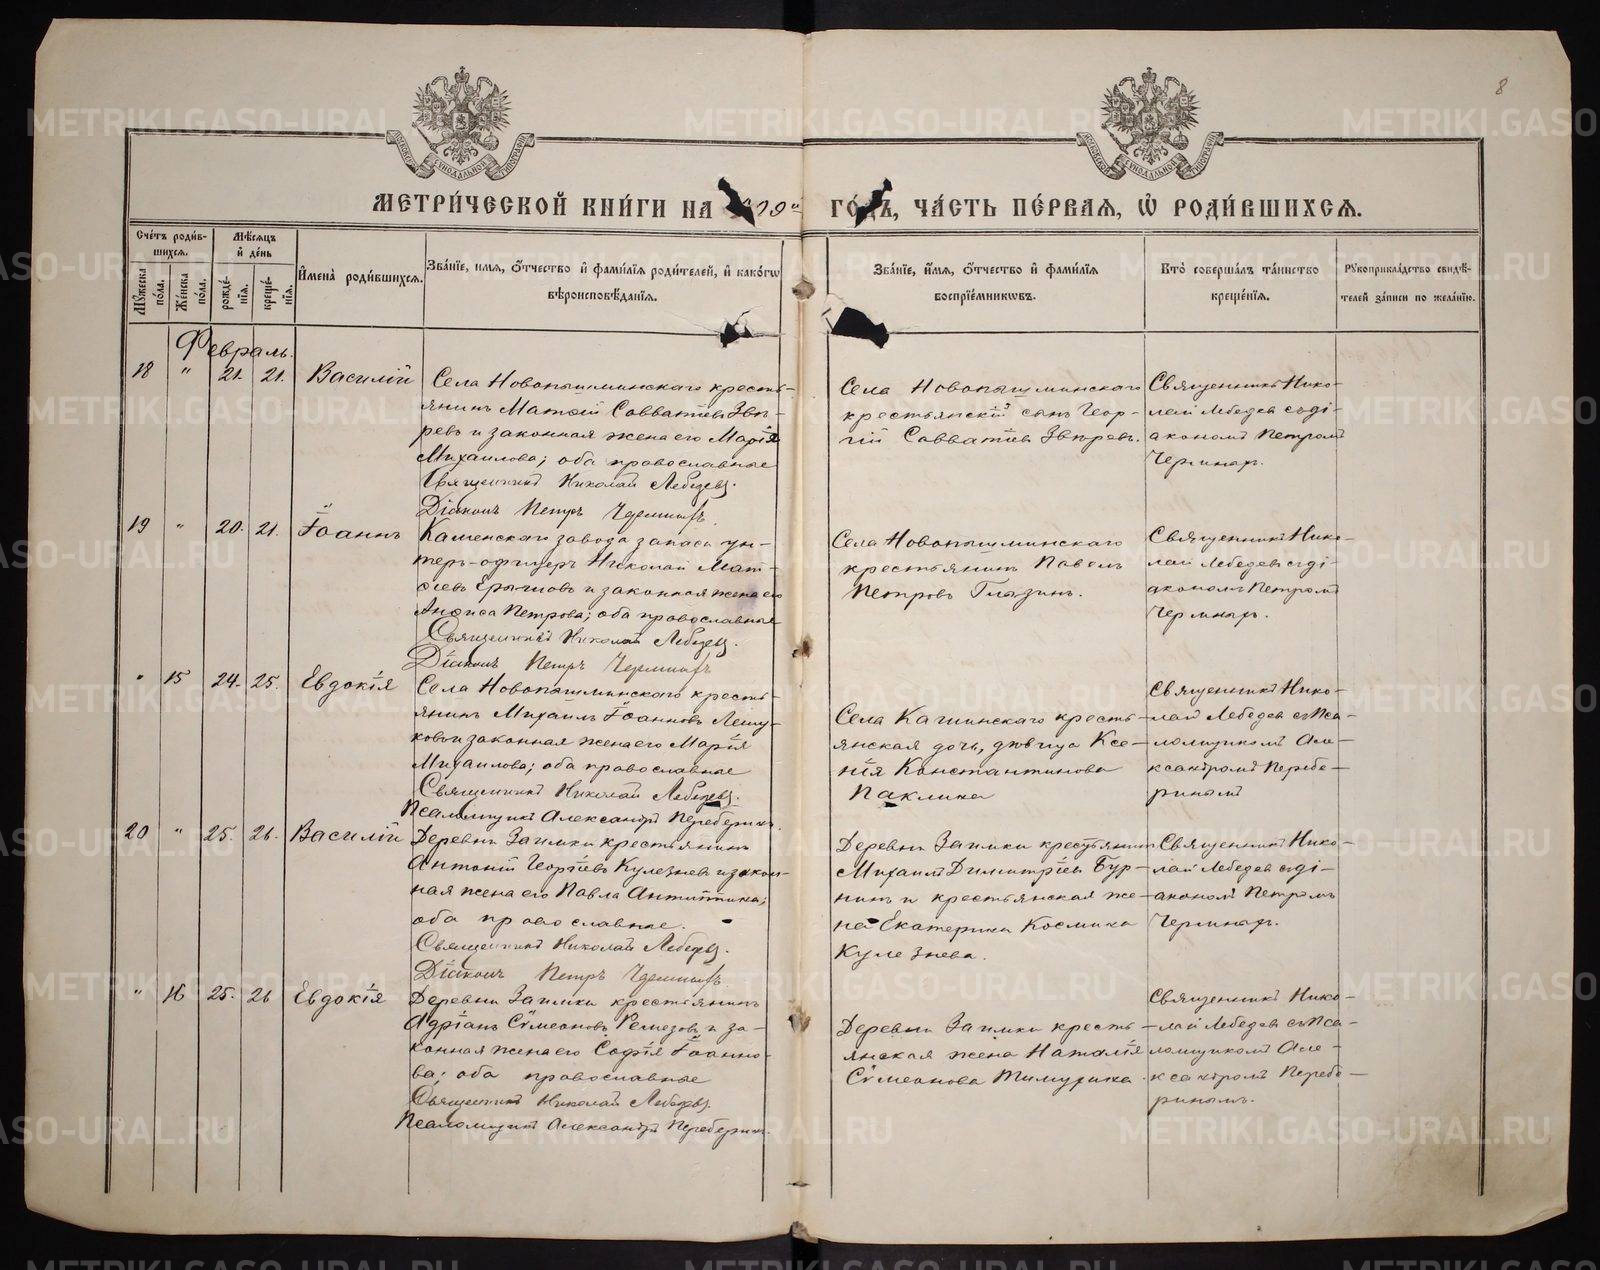 8
МЕТРИ́ЧЕСКОЙ КНИ́ГИ НА 19й ГО́ДЪ, ЧА́СТЬ ПЕ́РВАЯ, Ѡ РОДИ́ВШИХСЯ.
Сче́тъ роди́в-
шихся.
Му́жеска по́ла.
Же́нска по́ла.
Мѣ́сяцъ
и҆ де́нь
рожде́-
нія.
креще́-
нія.
И҆мена̀ роди́вшихся.
Зва́нїе, и҆мя, ѻ҆́тчество и҆ фами́лїя роди́телей, и҆ како́гѡ
вѣроисповѣ́данїя.
Зва́нїе, и҆́мя, ѻ҆́тчество и҆ фами́лїя
воспрїе́мникѡвъ.
Кто̀ соверша́лъ та́инство
креще́нїя.
Рукоприкла́дство свидѣ́-
телей за́писи по жела́нїю.
Февраль.
18 " 21. 21. Василій
Села Новопышминскаго кресть-
янинъ Матѳій Савватіевъ Звѣ-
ревъ и законная жена его Марія
Михаилова; оба православные
Священникъ Николай Лебедевъ.
Діаконъ Петръ
Села Новопышминскаго
крестьянскій сынъ Геор-
гій Савватіевъ Звѣревъ.
Священникъ Нико-
лай Лебедевъ съ ді-
акономъ Петромъ
19 " 20. 21. Іоаннъ
Каменскаго завода запаса ун-
теръ-офицеръ Николай Мат-
ѳеевъ и законная жена его
Анѳиса Петрова; оба православные
Священникъ Николай Лебедевъ.
Діаконъ Петръ
Села Новопышминскаго
крестьянинъ Павелъ
Петровъ Глызинъ.
Священникъ Нико-
лай Лебедевъ съ ді-
акономъ Петромъ
" 15 24. 25. Евдокія
Села Новопышминскаго кресть-
янинъ Михаилъ Іоанновъ Лещу-
ковъ и законная жена его Марія
Михаилова; оба православные
Священникъ Николай Лебедевъ.
Псаломщикъ Александръ Переберинъ.
Села Кашинскаго кресть-
янская дочь, дѣвица Ксе-
нія Константинова
Паклина
Священникъ Нико-
лай Лебедевъ съ пса-
ломщикомъ Але-
ксандромъ Перебе-
ринымъ
20 " 25. 26. Василій
Деревни Заимки крестьянинъ
Антоній Георгіевъ Кулезневъ и закон-
ная жена его Павла Антипина;
оба православные.
Священникъ Николай Лебедевъ.
Діаконъ Петръ
Деревни Заимки крестьянинъ
Михаилъ Димитріевъ Бур-
нинъ и крестьянская же-
на Екатерина Космина
Кулезнева.
Священникъ Нико-
лай Лебедевъ съ ді-
акономъ Петромъ
" 16 25. 26 Евдокія
Деревни Заимки крестьянинъ
Адріанъ Сѵмеоновъ Ремезовъ и за-
конная жена его Софія Іоанно-
ва; оба православные
Священникъ Николай Лебедевъ.
Псаломщикъ Александръ Переберинъ.
Деревни Заимки кресть-
янская жена Наталія
Сѵмеонова Тимурина.
Священникъ Нико-
лай Лебедевъ съ пса-
ломщикомъ Але-
ксандромъ Перебе-
ринымъ.
METRIKI.GASO-URAL.RU